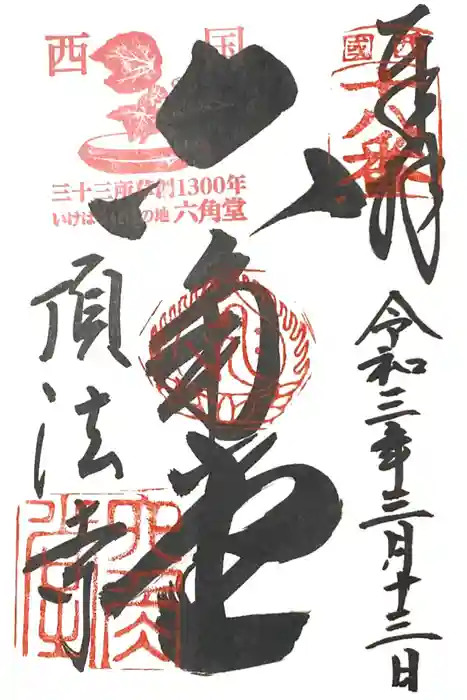 奉拝
令和三年三月十三日
西国十八番
六角堂
頂法寺
西国
三十三所草創1300年
いけばな発祥の地 六角堂
六角堂